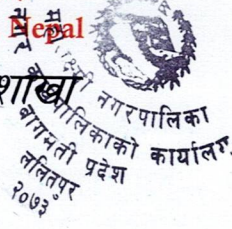 Nepal
शाखा
नगरपालिका
पालिकाको कार्यालय
बागमती प्रदेश
ललितपुर
२०७३